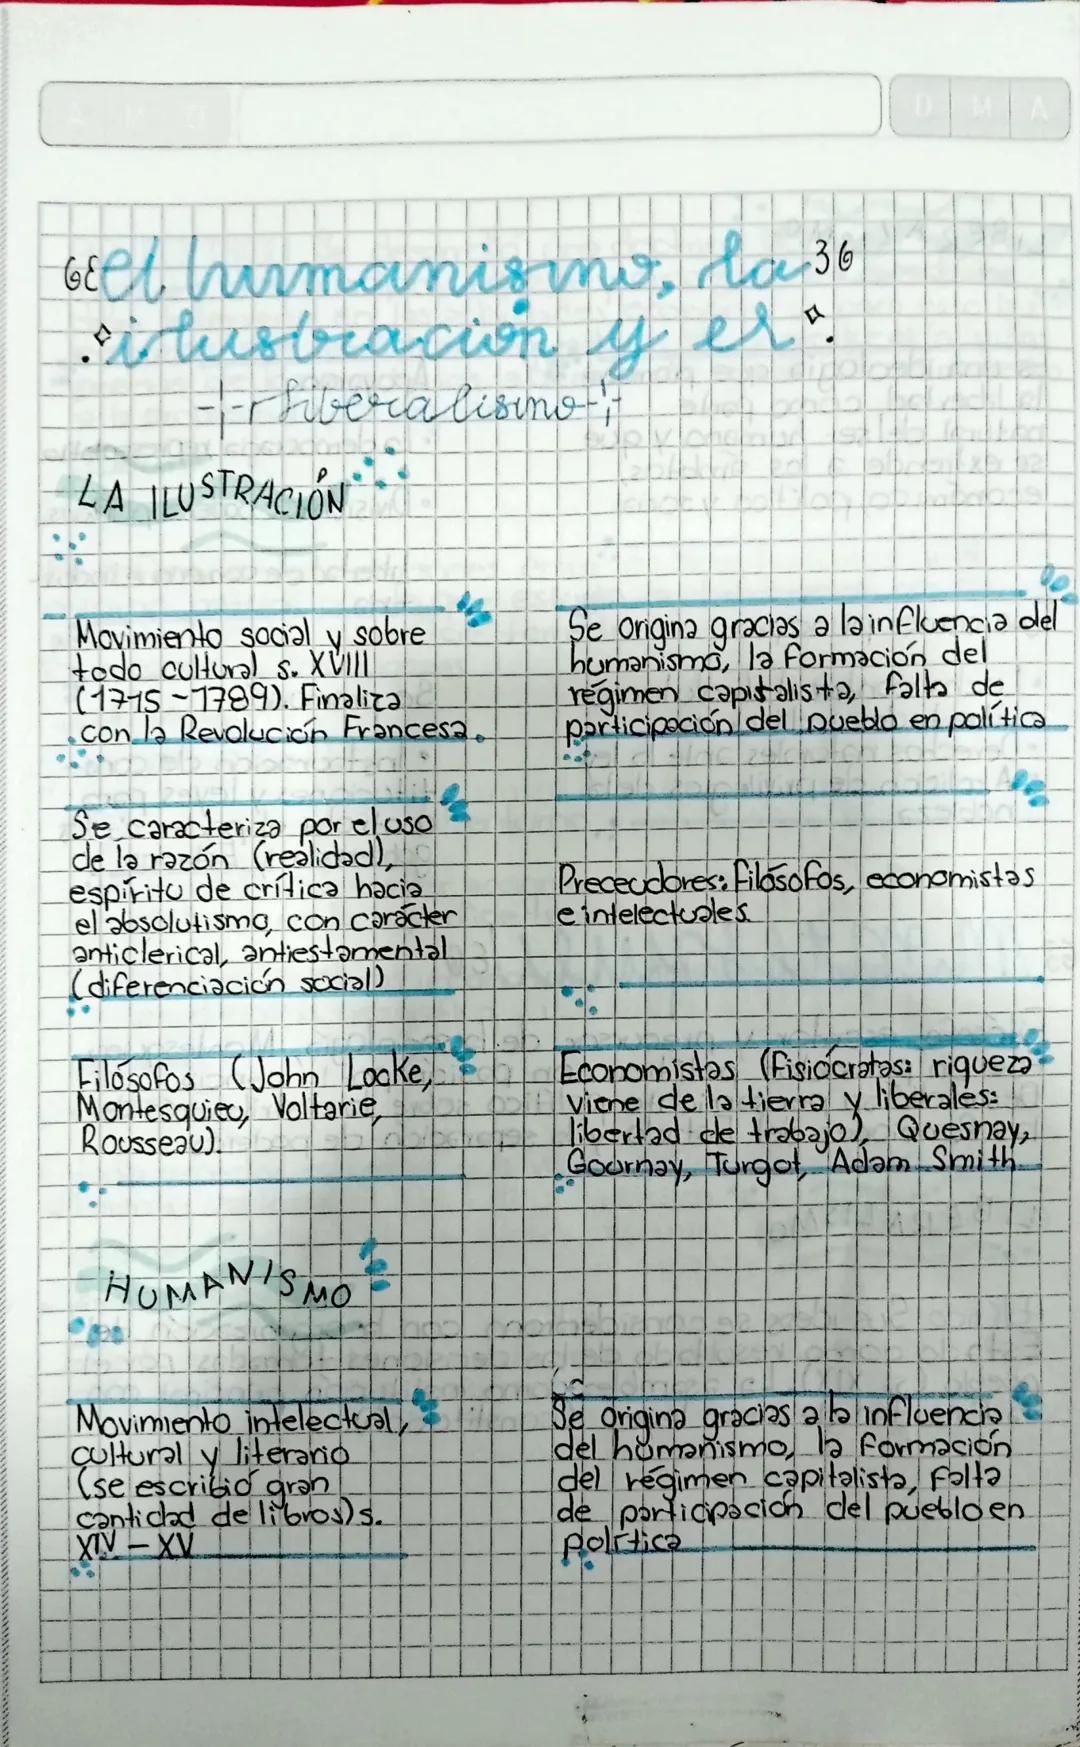 el humanismo, la
ilustración y el
liberalismo
LA ILUSTRACIÓN
Movimiento social y sobre
todo cultural s. XVIII
(1715-1789). Finaliza
con la Revolución Francesa.
Se origina gracias a la influencia del
humanismo, la formación del
régimen capitalista, falta de
participación del pueblo en política
Se caracteriza por el uso
de la razón (realidad),
espíritu de crítica hacia
el absolutismo, con carácter
anticlerical, antiestamental
(diferenciación social)
Preceudores: filósofos, economistas
e intelectuales.
Filósofos (John Locke,
Montesquieu, Voltarie,
Rousseau).
Economistas (Fisiócratas: riqueza
viene de la tierra y liberales:
libertad de trabajo), Quesnay,
Gournay, Turgot, Adam Smith
HUMANISMO
Movimiento intelectual,
cultural y literario
(se escribió gran
cantidad de libros)s.
XIV - XV
Se origina gracias a la influencia
del humanismo, la formación
del régimen capitalista, falta
de participación del pueblo en
política